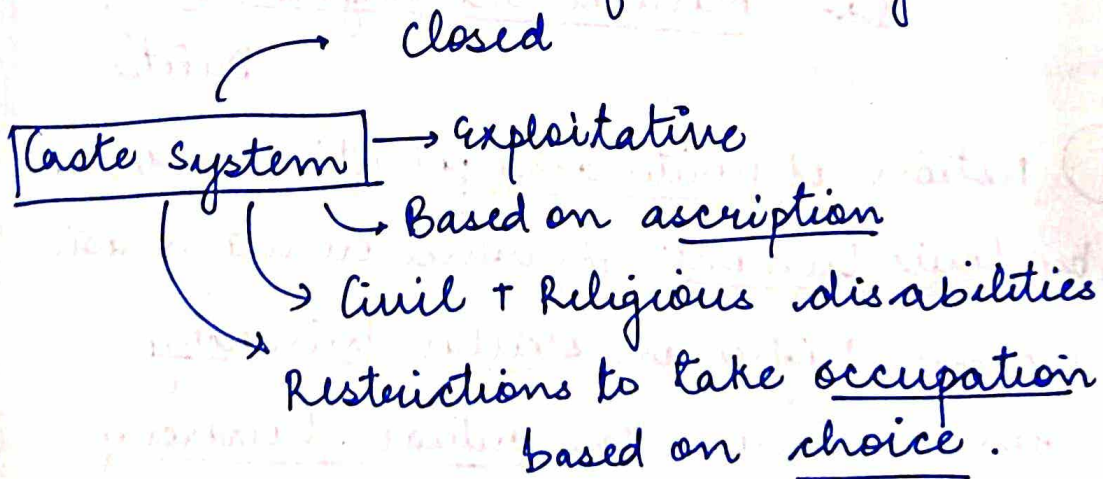 Closed
Caste system → Exploitative
Based on ascription
Civil + Religious disabilities
Restrictions to take occupation
based on choice.